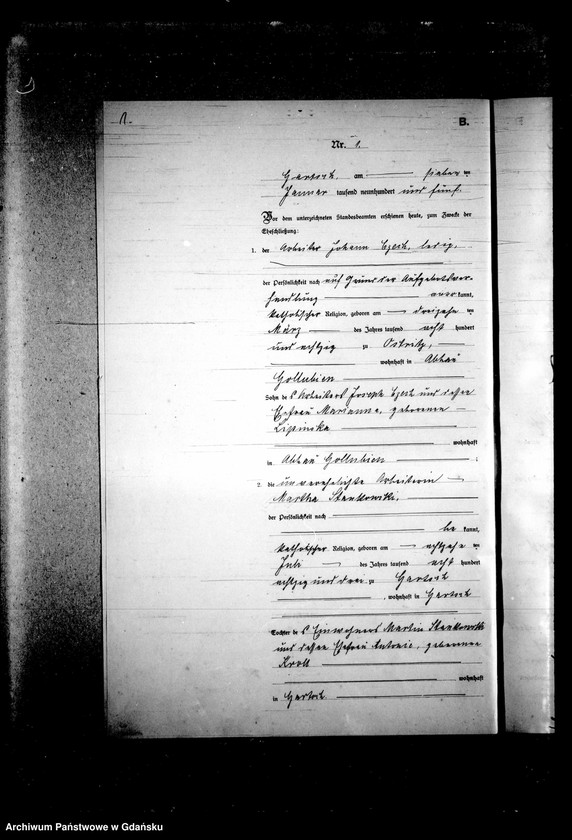 1.
B.
Nr. 1.
Gartsch am sieben ten
Januar tausend neunhundert und fünf.
Vor dem unterzeichneten Standesbeamten erschienen heute, zum Zwecke der
Eheschließung:
1. der Arbeiter Johann Czech, ledig,
der Persönlichkeit nach auf Grund der Aufgebotsver-
handlung anerkannt,
katholischer Religion, geboren am dreizehn ten
März des Jahres tausend acht hundert
und achtzig zu Ostritz,
wohnhaft in Abbau
Gollubien
Sohn des Arbeiters Joseph Czech und dessen
Ehefrau Marianna, geborenen
Lipinska
wohnhaft
in Abbau Gollubien ;
2. die unverehelichte Arbeiterin
Martha Stenkowski,
der Persönlichkeit nach
be kannt,
katholischer Religion, geboren am achtzehn ten
Juli des Jahres tausend acht hundert
achtzig und drei zu Gartsch
, wohnhaft in Gartsch
Tochter des Einwohners Martin Stenkowski
und dessen Ehefrau Antonie, geborenen
Kroll
wohnhaft
in Gartsch
Archiwum Państwowe w Gdańsku